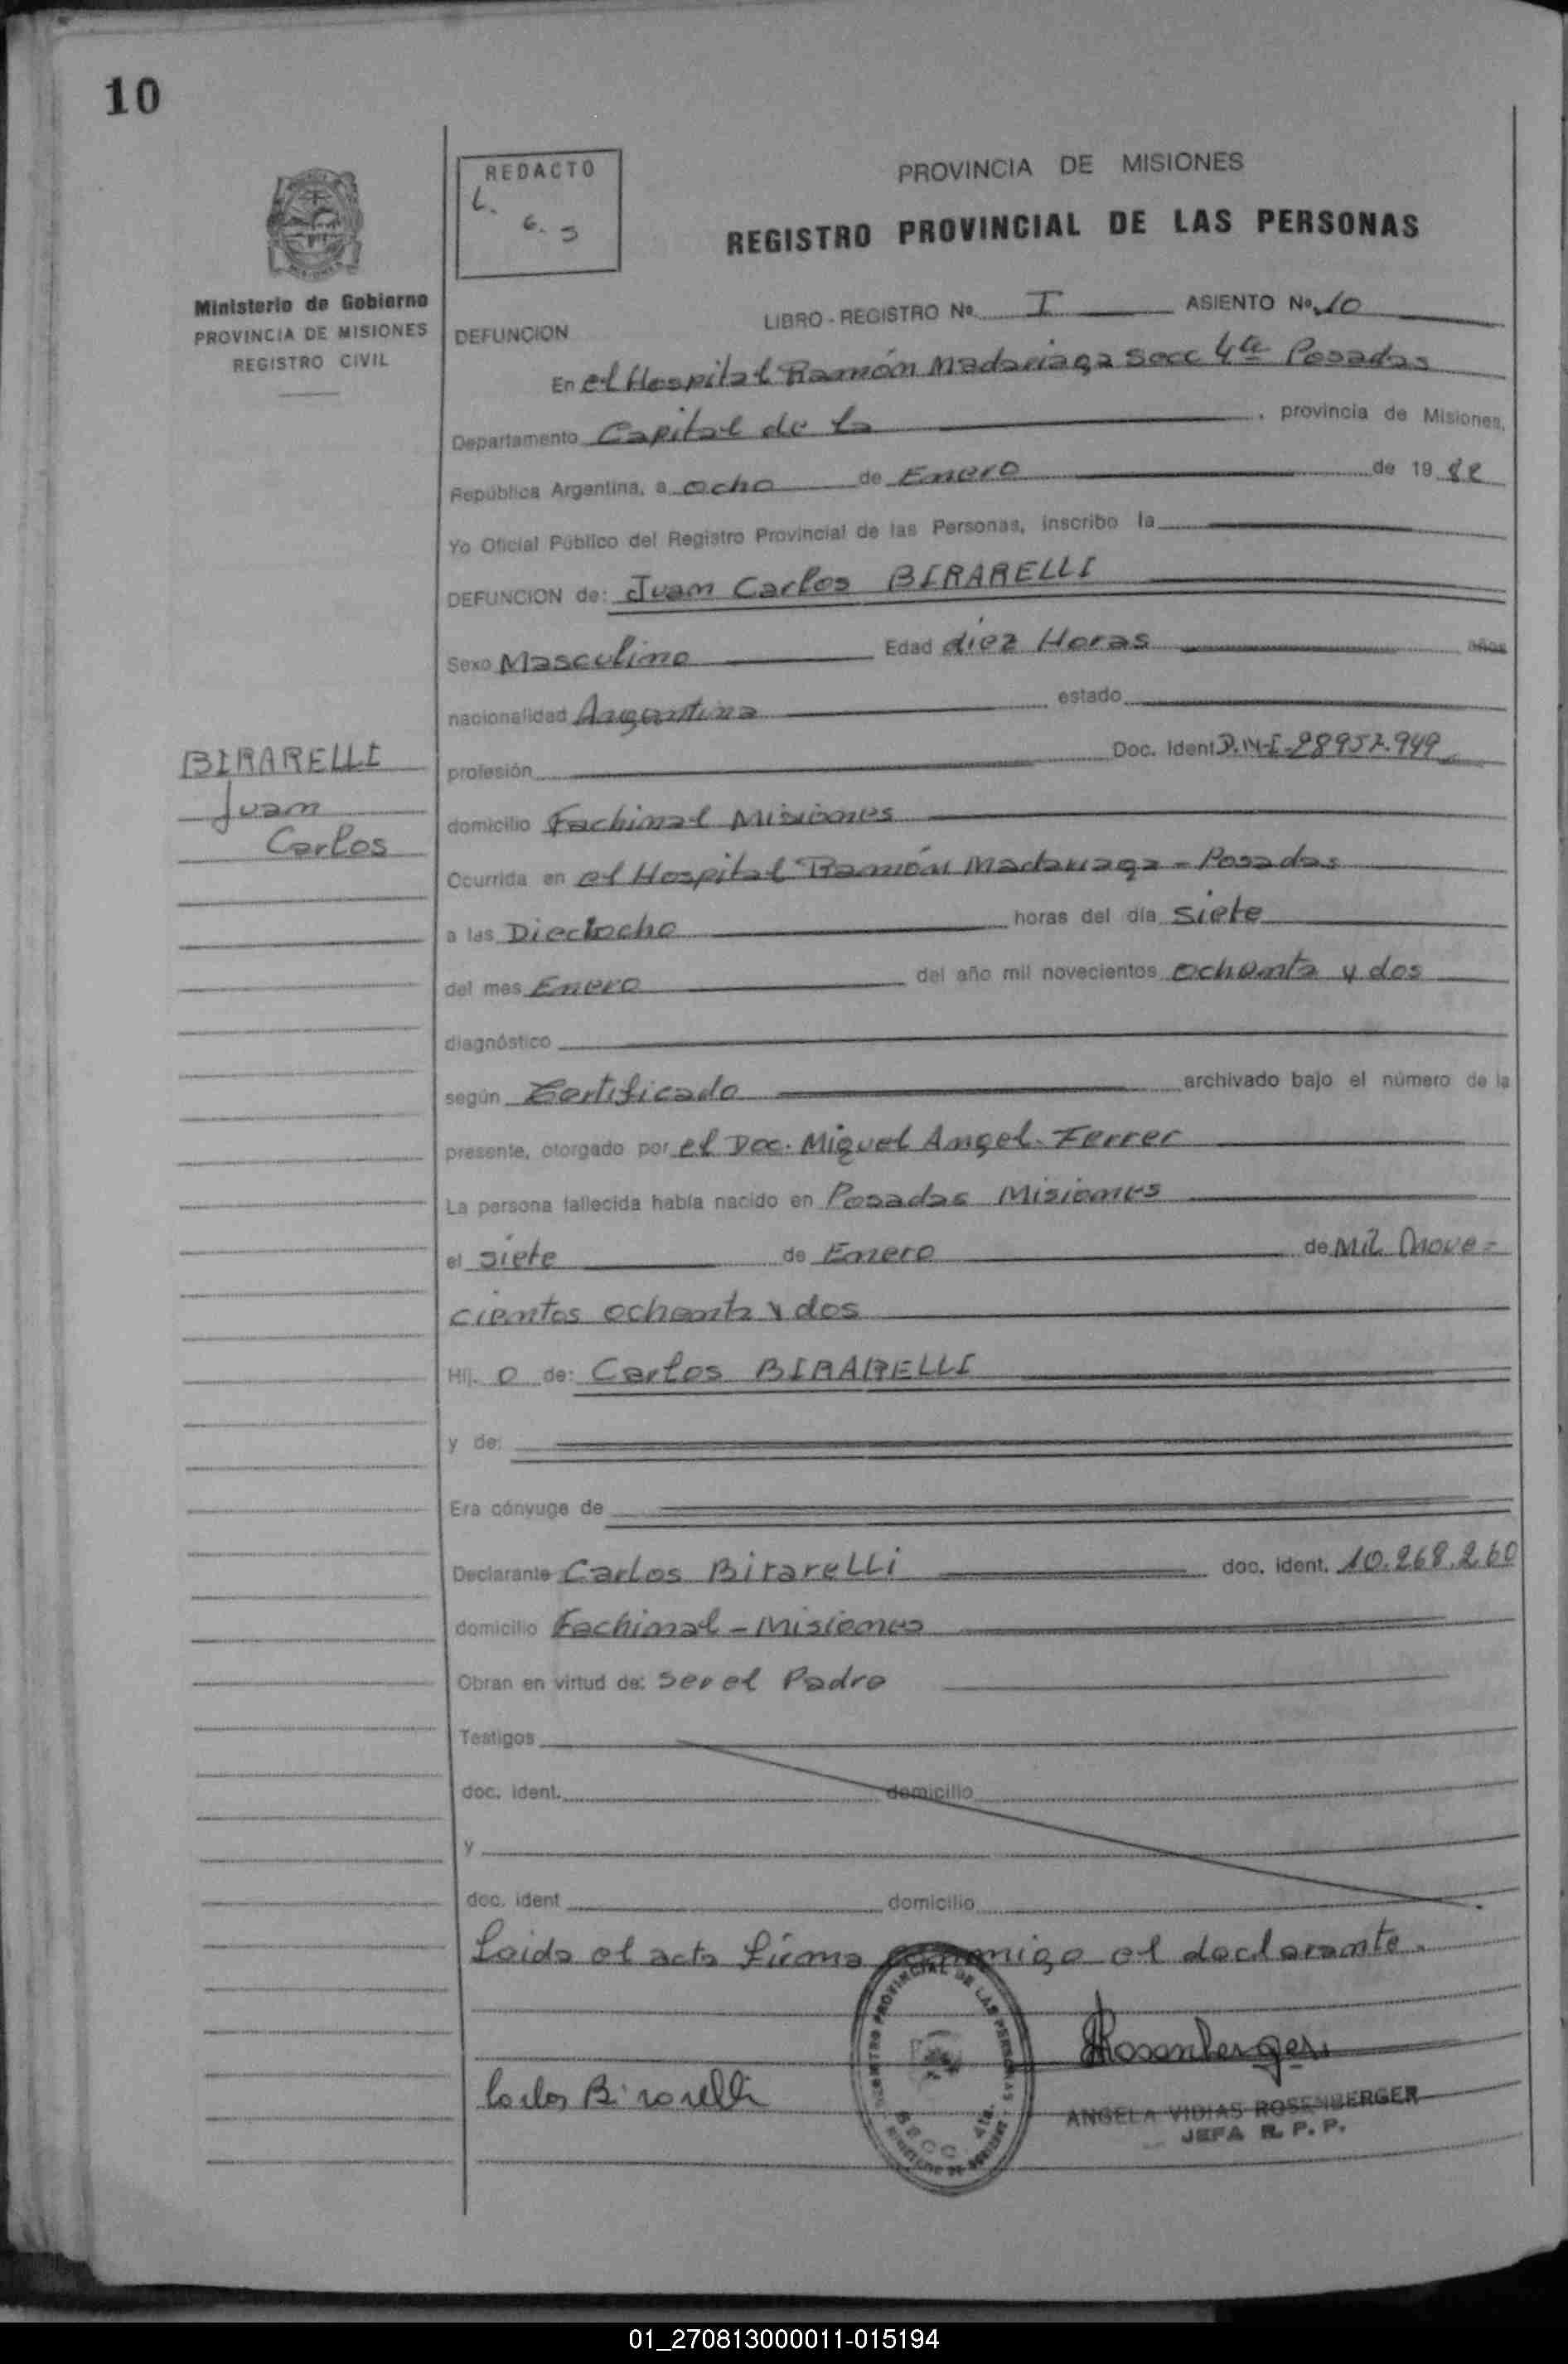 10
REDACTO
L.
6. 5
Ministerio de Gobierno
PROVINCIA DE MISIONES
REGISTRO CIVIL
PROVINCIA DE MISIONES
REGISTRO PROVINCIAL DE LAS PERSONAS
LIBRO - REGISTRO Nº I ASIENTO Nº 10
DEFUNCION
En el Hospital Ramón Madariaga Secc 4ta Posadas
Departamento Capital de la , provincia de Misiones,
República Argentina, a ocho de Enero de 19 82
Yo Oficial Público del Registro Provincial de las Personas, inscribo la
DEFUNCION de: Juan Carlos BIRARELLI
Sexo Masculino Edad diez Horas años
nacionalidad Argentina estado
profesión Doc. Ident D.N-I- 28957.949
domicilio Fachinal Misiones
Ocurrida en el Hospital Ramón Madariaga - Posadas
a las Dieciocho horas del día siete
del mes Enero del año mil novecientos ochenta y dos
diagnóstico
según Certificado archivado bajo el número de la
presente, otorgado por el Doc. Miguel Angel Ferrer
La persona fallecida había nacido en Posadas Misiones
el siete de Enero de Mil Nove=
cientos ochenta y dos
Hij. o de: Carlos BIRARELLI
y de:
Era cónyuge de
Declarante Carlos BirareLLi doc. ident. 10.268.260
domicilio Fachinal - Misiones
Obran en virtud de: Ser el Padre
Testigos
doc. ident. domicilio
y
doc. ident domicilio
Leida el acta firma conmigo el declarante.
BIRARELLI
Juan
Carlos
Carlos Birarelli
REGISTRO PROVINCIAL DE LAS PERSONAS
SECC. 4ta.
Rosenberger
ANGELA VIDIAS ROSENBERGER
JEFA R. P. P.
01_270813000011-015194